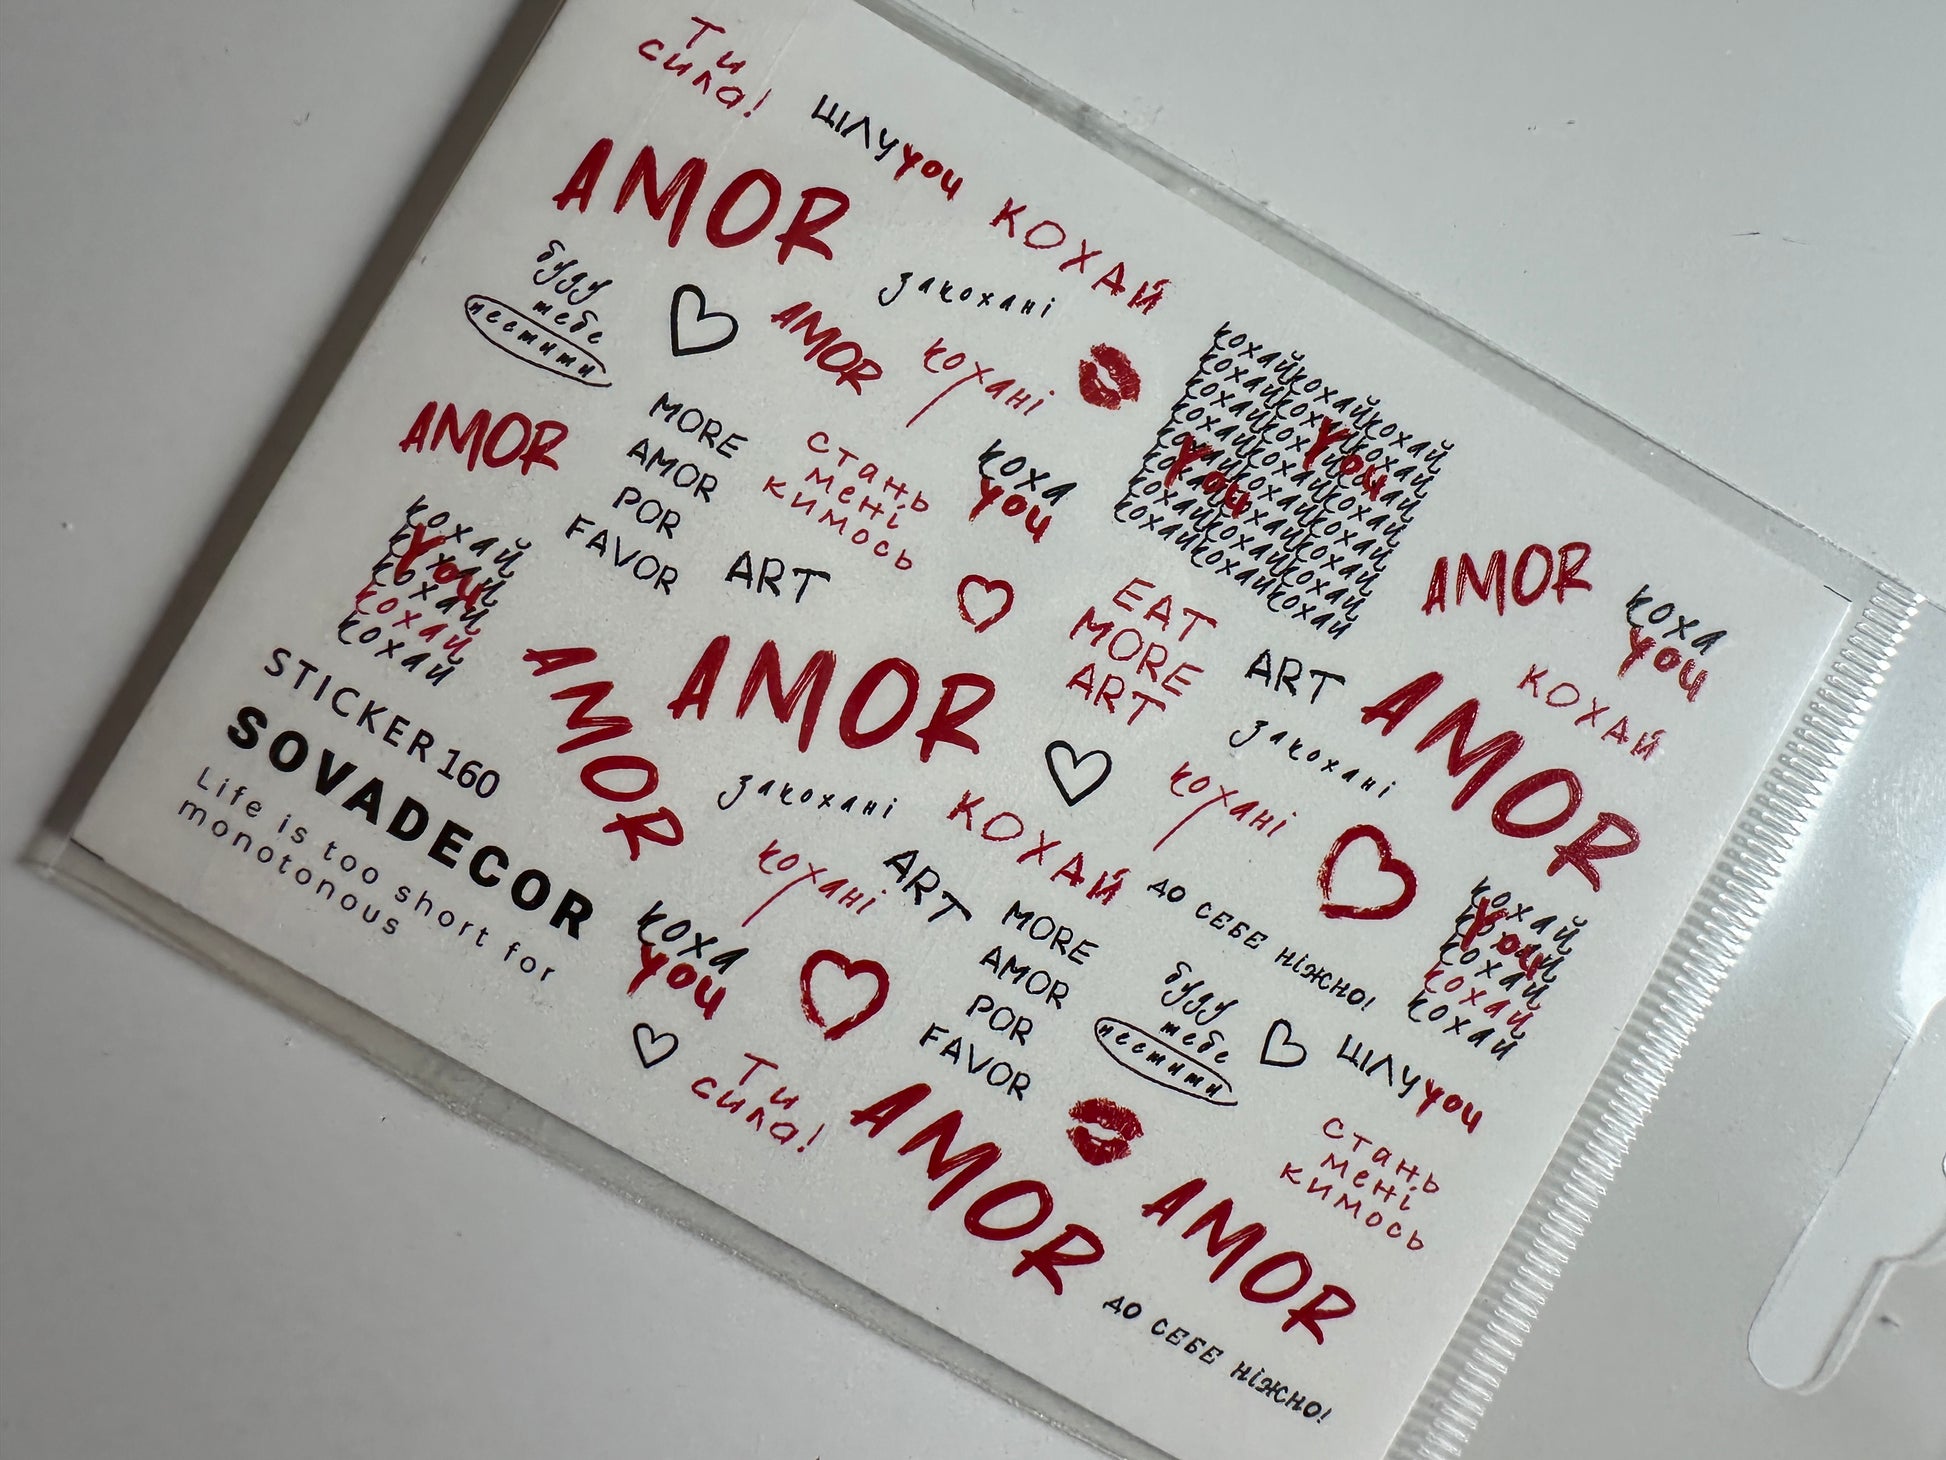 Ти
сила!
цілуyou
AMOR
КОХАЙ
закохані
буду
тебе
пестити
AMOR
кохані
кохайкохайкохай
кохайкохайкохай
кохайкохайкохай
кохайкохайкохай
кохайкохайкохай
кохайкохайкохай
кохайкохайкохай
кохайкохайкохай
You
You
AMOR
MORE
AMOR
POR
FAVOR
стань
мені
кимось
коха
you
ART
AMOR
коха
you
кохай
кохай
кохай
кохай
кохай
You
EAT
MORE
ART
ART
КОХАЙ
AMOR
AMOR
AMOR
закохані
STICKER 160
SOVADECOR
Life is too short for
monotonous
закохані
КОХАЙ
кохані
кохані
ART
ДО СЕБЕ НІЖНО!
кохай
кохай
кохай
кохай
кохай
You
коха
you
MORE
AMOR
POR
FAVOR
буду
тебе
пестити
цілуyou
Ти
сила!
AMOR
стань
мені
кимось
AMOR
ДО СЕБЕ НІЖНО!